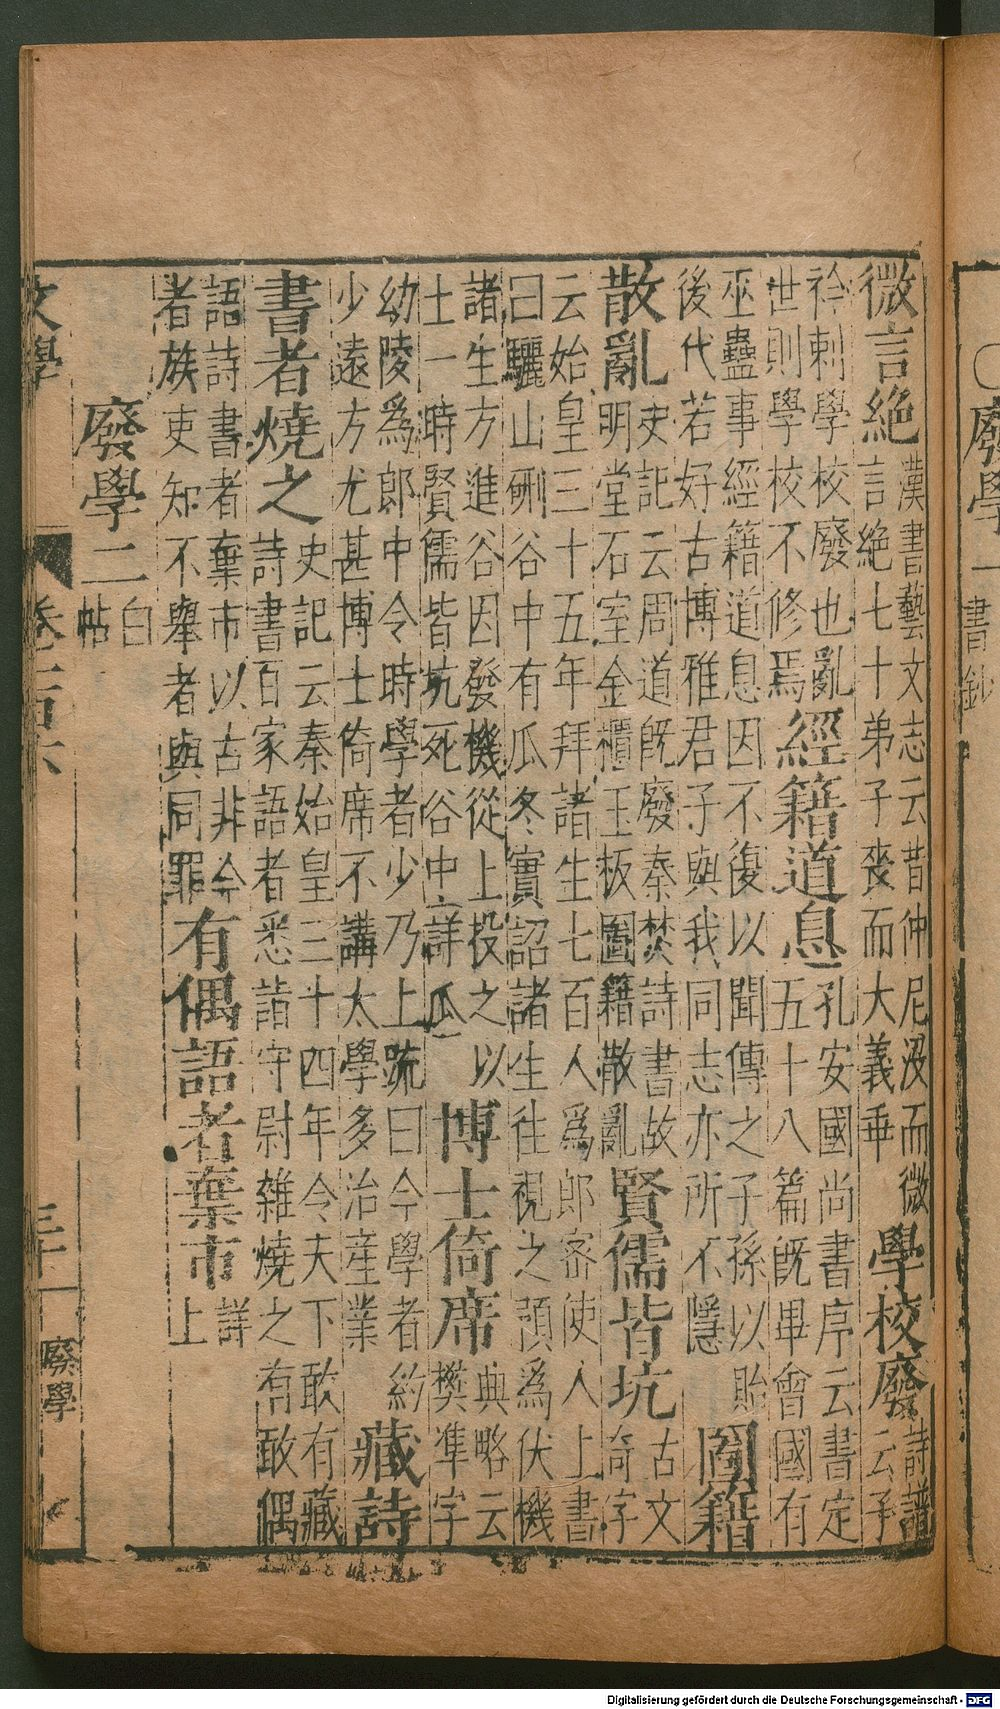 〇廢學一書鈔
微言絶漢書藝文志云昔仲尼沒而微言絶七十弟子喪而大義垂學校廢詩譜云子
衿刺學校廢也亂世則學校不修焉經籍道息孔安國尚書序云書定五十八篇既畢會國有
巫蠱事經籍道息因不復以聞傳之子孫以貽後代若好古博雅君子與我同志亦所不隱圖籍
散亂史記云周道旣廢秦焚詩書故明堂石室金櫃玉板圖籍散亂賢儒皆坑古文奇字
云始皇三十五年拜諸生七百人爲郎密使人上書曰驪山硎谷中有瓜冬實詔諸生往視之預爲伏機
諸生方進谷因發機從上投之以土一時賢儒皆坑死谷中詳瓜博士倚席典略云樊準字
幼陵爲郎中令時學者少乃上疏曰今學者約少遠方尤甚博士倚席不講太學多治産業藏詩
書者燒之史記云秦始皇三十四年令夫下敢有藏詩書百家語者悉詣守尉雜燒之有敢偶
語詩書者棄市以古非今者族吏知不舉者與同罪有偶語者棄市詳上
廢學二白帖
文學 卷一百六 三十 廢學
Digitalisierung gefördert durch die Deutsche Forschungsgemeinschaft - DFG